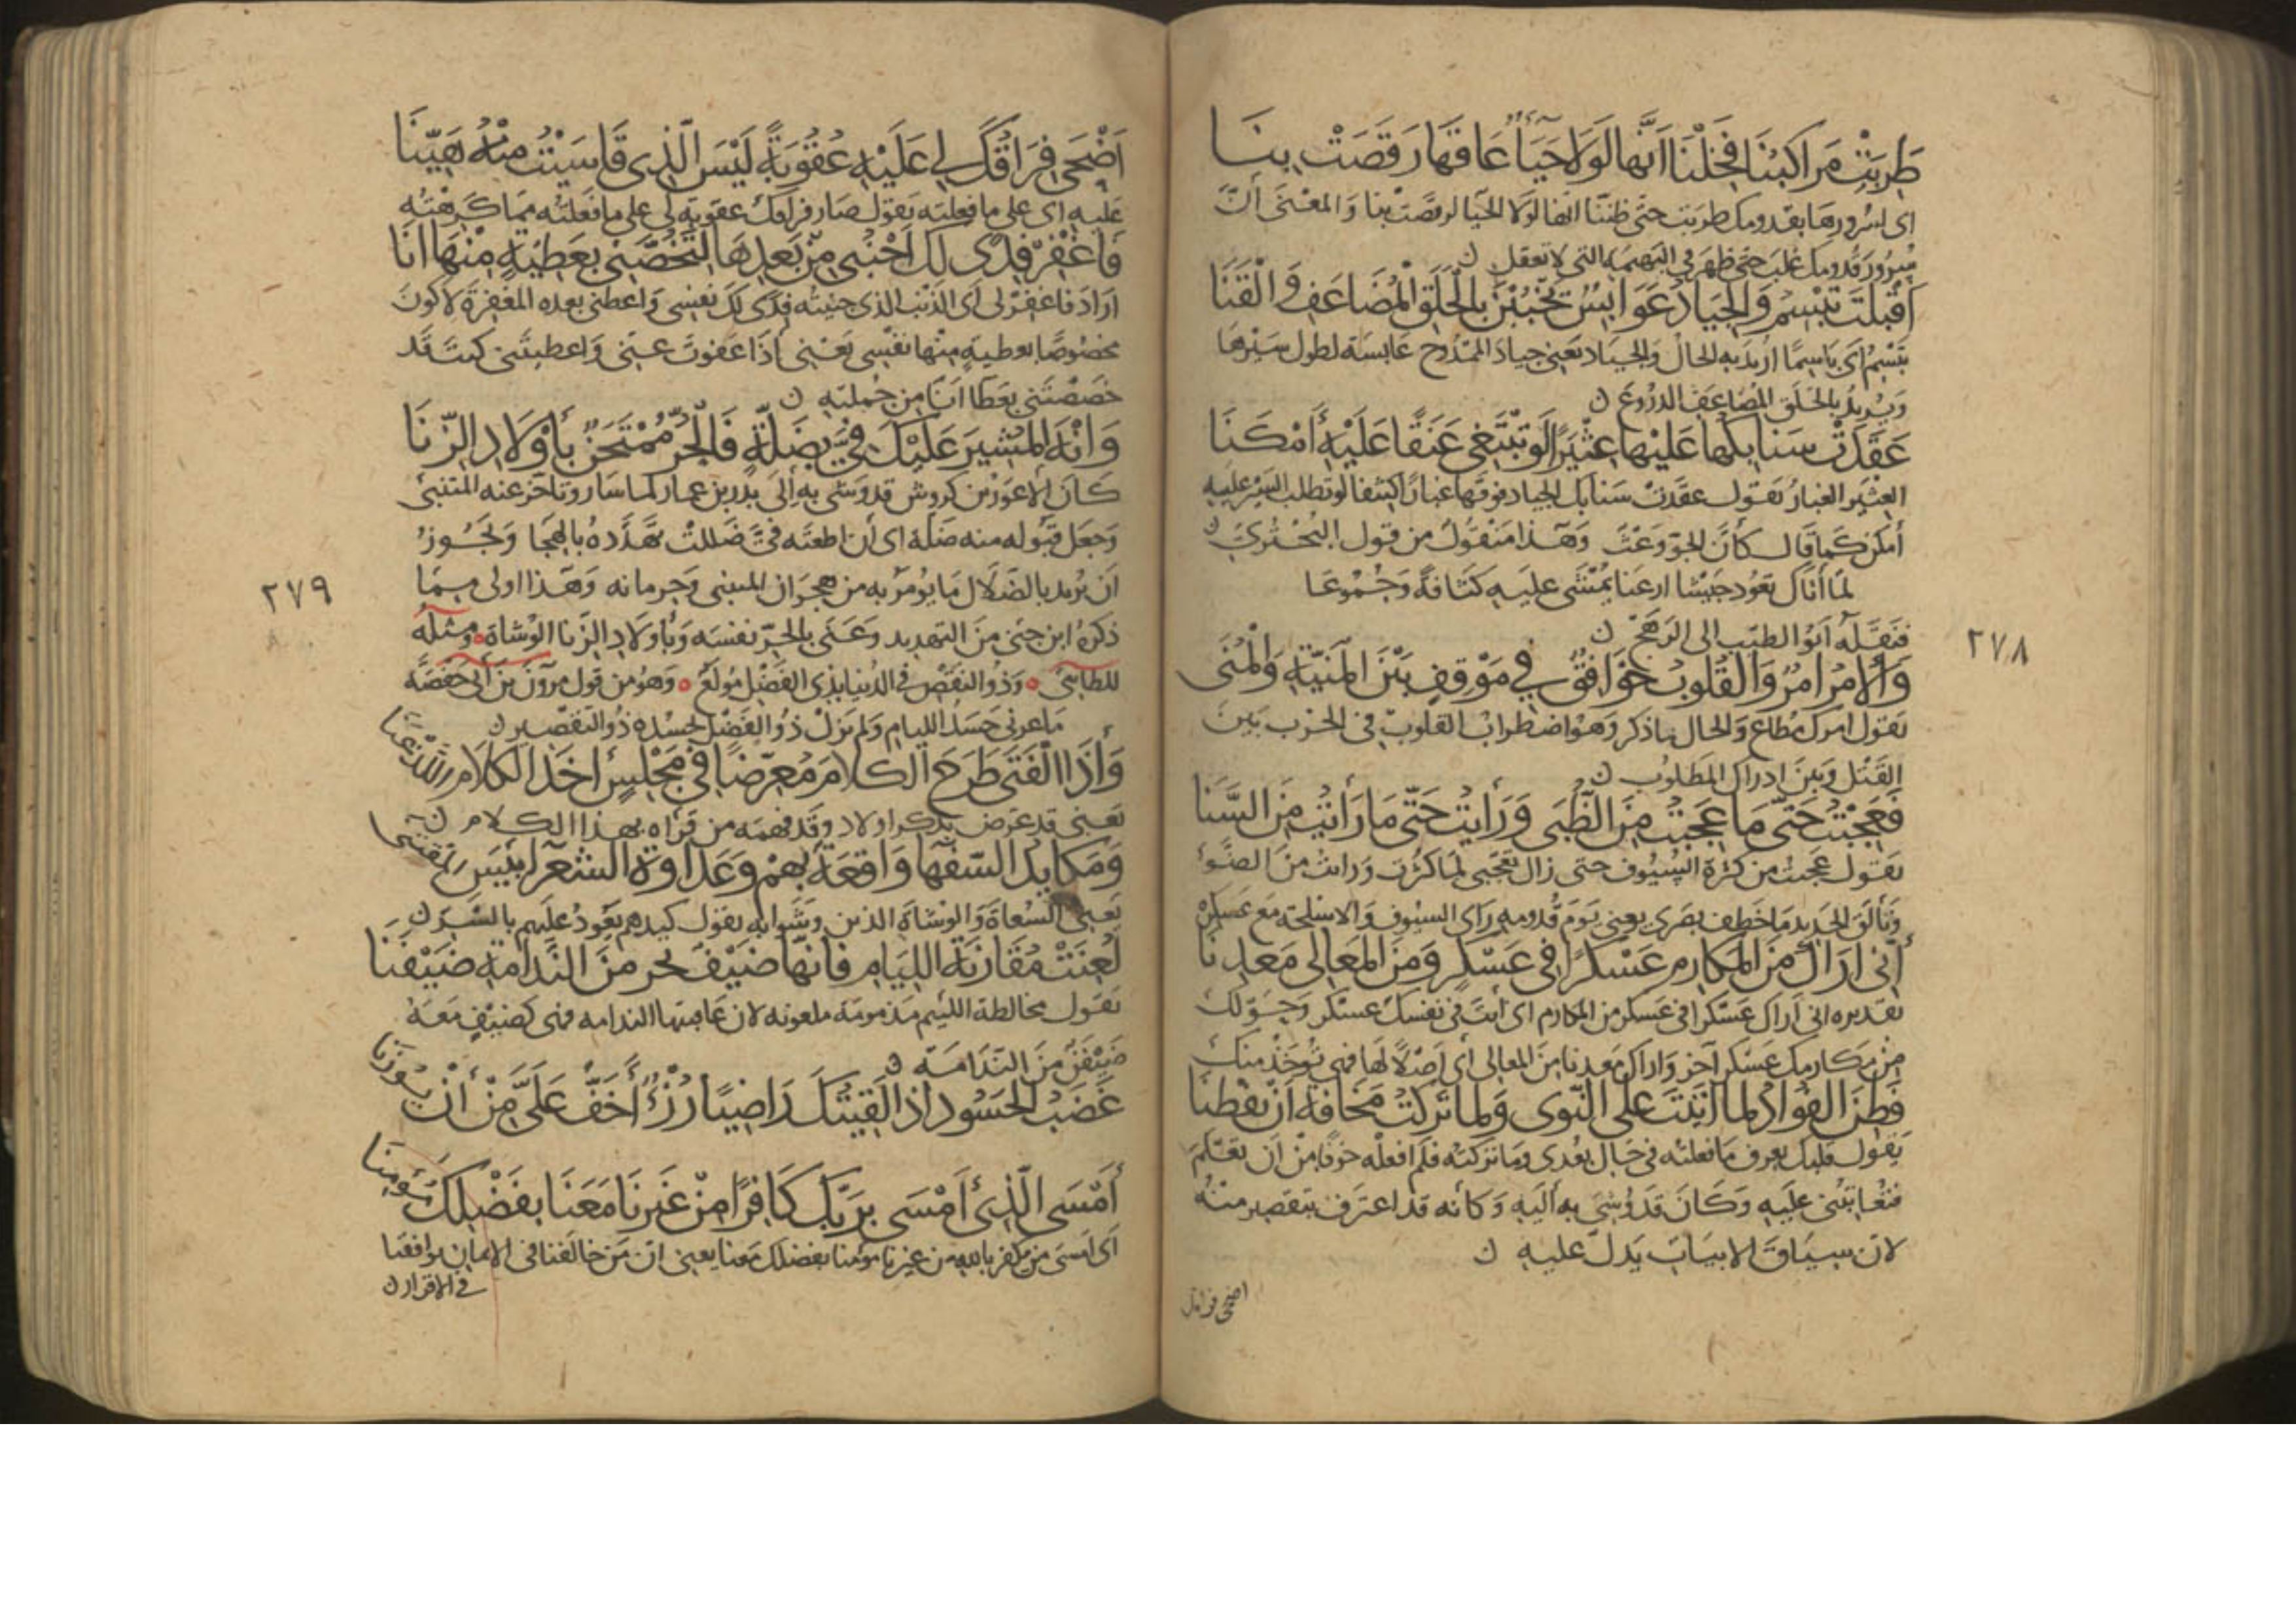 طَرِبَتْ مَرَاكِبُنَا فَخِلْنَا أَنَّهَا لَوْلَا حَيَاءٌ عَاقَهَا رَقَصَتْ بِنَا
اى لسرورها بقدومك طربت حتى ظننا انها لولا الحيا لرقصت بنا والمعنى أنّ
سرور قدومك غلب حتى ظهر في البهيمة التي لا تعقل ن
أَقْبَلْتَ تَبْسِمُ وَالْجِيَادُ عَوَابِسٌ يَخْبُبْنَ بِالْحَلَقِ الْمُضَاعَفِ وَالْقَنَا
تبسم أى باسما اريد به الحال والجياد يعنى جياد الممدوح عابسة لطول سيرها
ويريد بالحلق المضاعف الدروع ن
عَقَدَتْ سَنَابِكُهَا عَلَيْهَا عِثْيَرًا لَوْ تَبْتَغِي عَنَقًا عَلَيْهِ أَمْكَنَا
العثير الغبار يقول عقدت سنابك الجياد فوقها غبارا كثيفا لو تطلب السير عليه
أمكن كما قال كأن الجو وعث وهذا منقول من قول البحتري ن
لما أتاك يقود جيشا ارعنا يمشى عليه كثافة وجموعا
فنقله ابو الطيب الى الرهج ن
وَالْأَمْرُ أَمْرُكَ وَالْقُلُوبُ خَوَافِقٌ فِي مَوْقِفٍ بَيْنَ الْمَنِيَّةِ وَالْمُنَى
يقول امرك مطاع والحال ما ذكر وهو اضطراب القلوب في الحرب بين
القتل وبين ادراك المطلوب ن
فَعَجِبْتُ حَتَّى مَا عَجِبْتُ مِنَ الظُّبَى وَرَأَيْتُ حَتَّى مَا رَأَيْتُ مِنَ السَّنَا
يقول عجبت من كثرة السيوف حتى زال تعجبى لما كثرت ورايت من الضوء
وتألق الحديد ما خطف بصرى يعنى يوم قدومه راى السيوف والاسلحة مع عسكره
إِنِّي أَرَاكَ مِنَ الْمَكَارِمِ عَسْكَرًا فِي عَسْكَرٍ وَمِنَ الْمَعَالِي مَعْدِنَا
تقديره انى أراك عسكرا فى عسكر من المكارم اى انت فى نفسك عسكر وحولك
من مكارمك عسكر آخر واراك معدنا من المعالى أى اصلا لها فهي تؤخذ منك
فَطِنَ الْفُؤَادُ لِمَا أَتَيْتُ عَلَى النَّوَى وَلِمَا تَرَكْتُ مَخَافَةً أَنْ تَفْطُنَا
يقول قلبك يعرف ما فعلته فى حال بعدى وما تركته فلم افعله خوفا من ان تعلم
فتعاتبنى عليه وكان قد وشى به اليه وكأنه قد اعترف بتقصير منه
لان سياق الابيات يدل عليه ن
اضحى فراقك
٢٧٨
أَضْحَى فِرَاقُكَ لِي عَلَيْهِ عُقُوبَةً لَيْسَ الَّذِي قَاسَيْتُ مِنْهُ هَيِّنَا
عليه اى على ما فعلته يقول صار فراقك عقوبة لى على ما فعلته مما كرهته
فَاغْفِرْ فِدًى لَكَ وَاحْبُنِي مِنْ بَعْدِهَا لِتَخُصَّنِي بِعَطِيَّةٍ مِنْهَا أَنَا
اراد فاغفر لى اى الذنب الذى جنيته فدى لك نفسى واعطنى بعد المغفرة لاكون
مخصوصا بعطية منها نفسى يعنى اذا عفوت عنى واعطيتنى كنت قد
خصصتنى بعطا انا من جملته ن
وَانْهَ الْمُشِيرَ عَلَيْكَ فِيَّ بِضَلَّةٍ فَالْحُرُّ مُمْتَحَنٌ بِأَوْلَادِ الزِّنَا
كان الاعور بن كروس قد وشى به إلى بدر بن عمار لما سار وتاخر عنه المتنبى
وجعل قبوله منه ضلة اى ان اطعته فىّ ضللت تهدده بالهجا ويجوز
ان يريد بالضلال ما يؤمر به من هجران المتنبى وحرمانه وهذا اولى مما
ذكره ابن جنى من التهديد وعنى بالحر نفسه وباولاد الزنا الوشاة ومثله
للطاى وذو النقص فى الدنيا بذى الفضل مولع وهو من قول مروان بن أبى حفصة
ما ضرنى حسد الليام ولم يزل ذو الفضل يحسده ذوو التقصير ن
وَإِذَا الْفَتَى طَرَحَ الْكَلَامَ مُعَرِّضًا فِي مَجْلِسٍ أَخَذَ الْكَلَامَ اللَّذْ عَنَا
يعنى قد عرض بذكر اولاد وقد فهمه من قراه بهذا الكلام ن
وَمَكَايِدُ السُّفَهَا وَاقِعَةٌ بِهِمْ وَعَدَاوَةُ الشُّعَرَا بِئْسَ الْمُقْتَنَى
يعنى السعاة والوشاة الذين وشوا به يقول كيدهم يعود عليهم بالشر ن
لُعِنَتْ مُقَارَنَةُ اللِّيَامِ فَإِنَّهَا ضَيْفٌ يَجُرُّ مِنَ النَّدَامَةِ ضَيْفَنَا
يقول مخالطة اللئيم مذمومة ملعونه لان عاقبتها الندامه فهى كضيف معه
ضيفن من الندامة ن
غَضَبُ الْحَسُودِ إِذَا لَقِيتُكَ رَاضِيًا رُزْءٌ أَخَفُّ عَلَيَّ مِنْ أَنْ يُوزَنَا
أَمْسَى الَّذِي أَمْسَى بِرَبِّكَ كَافِرًا مِنْ غَيْرِنَا مَعَنَا بِفَضْلِكَ مُؤْمِنَا
اى امسى من يكفر بالله من غيرنا مؤمنا بفضلك معنا يعنى ان من خالفنا فى الايمان يوافقنا
فى الاقرار ن
٢٧٩